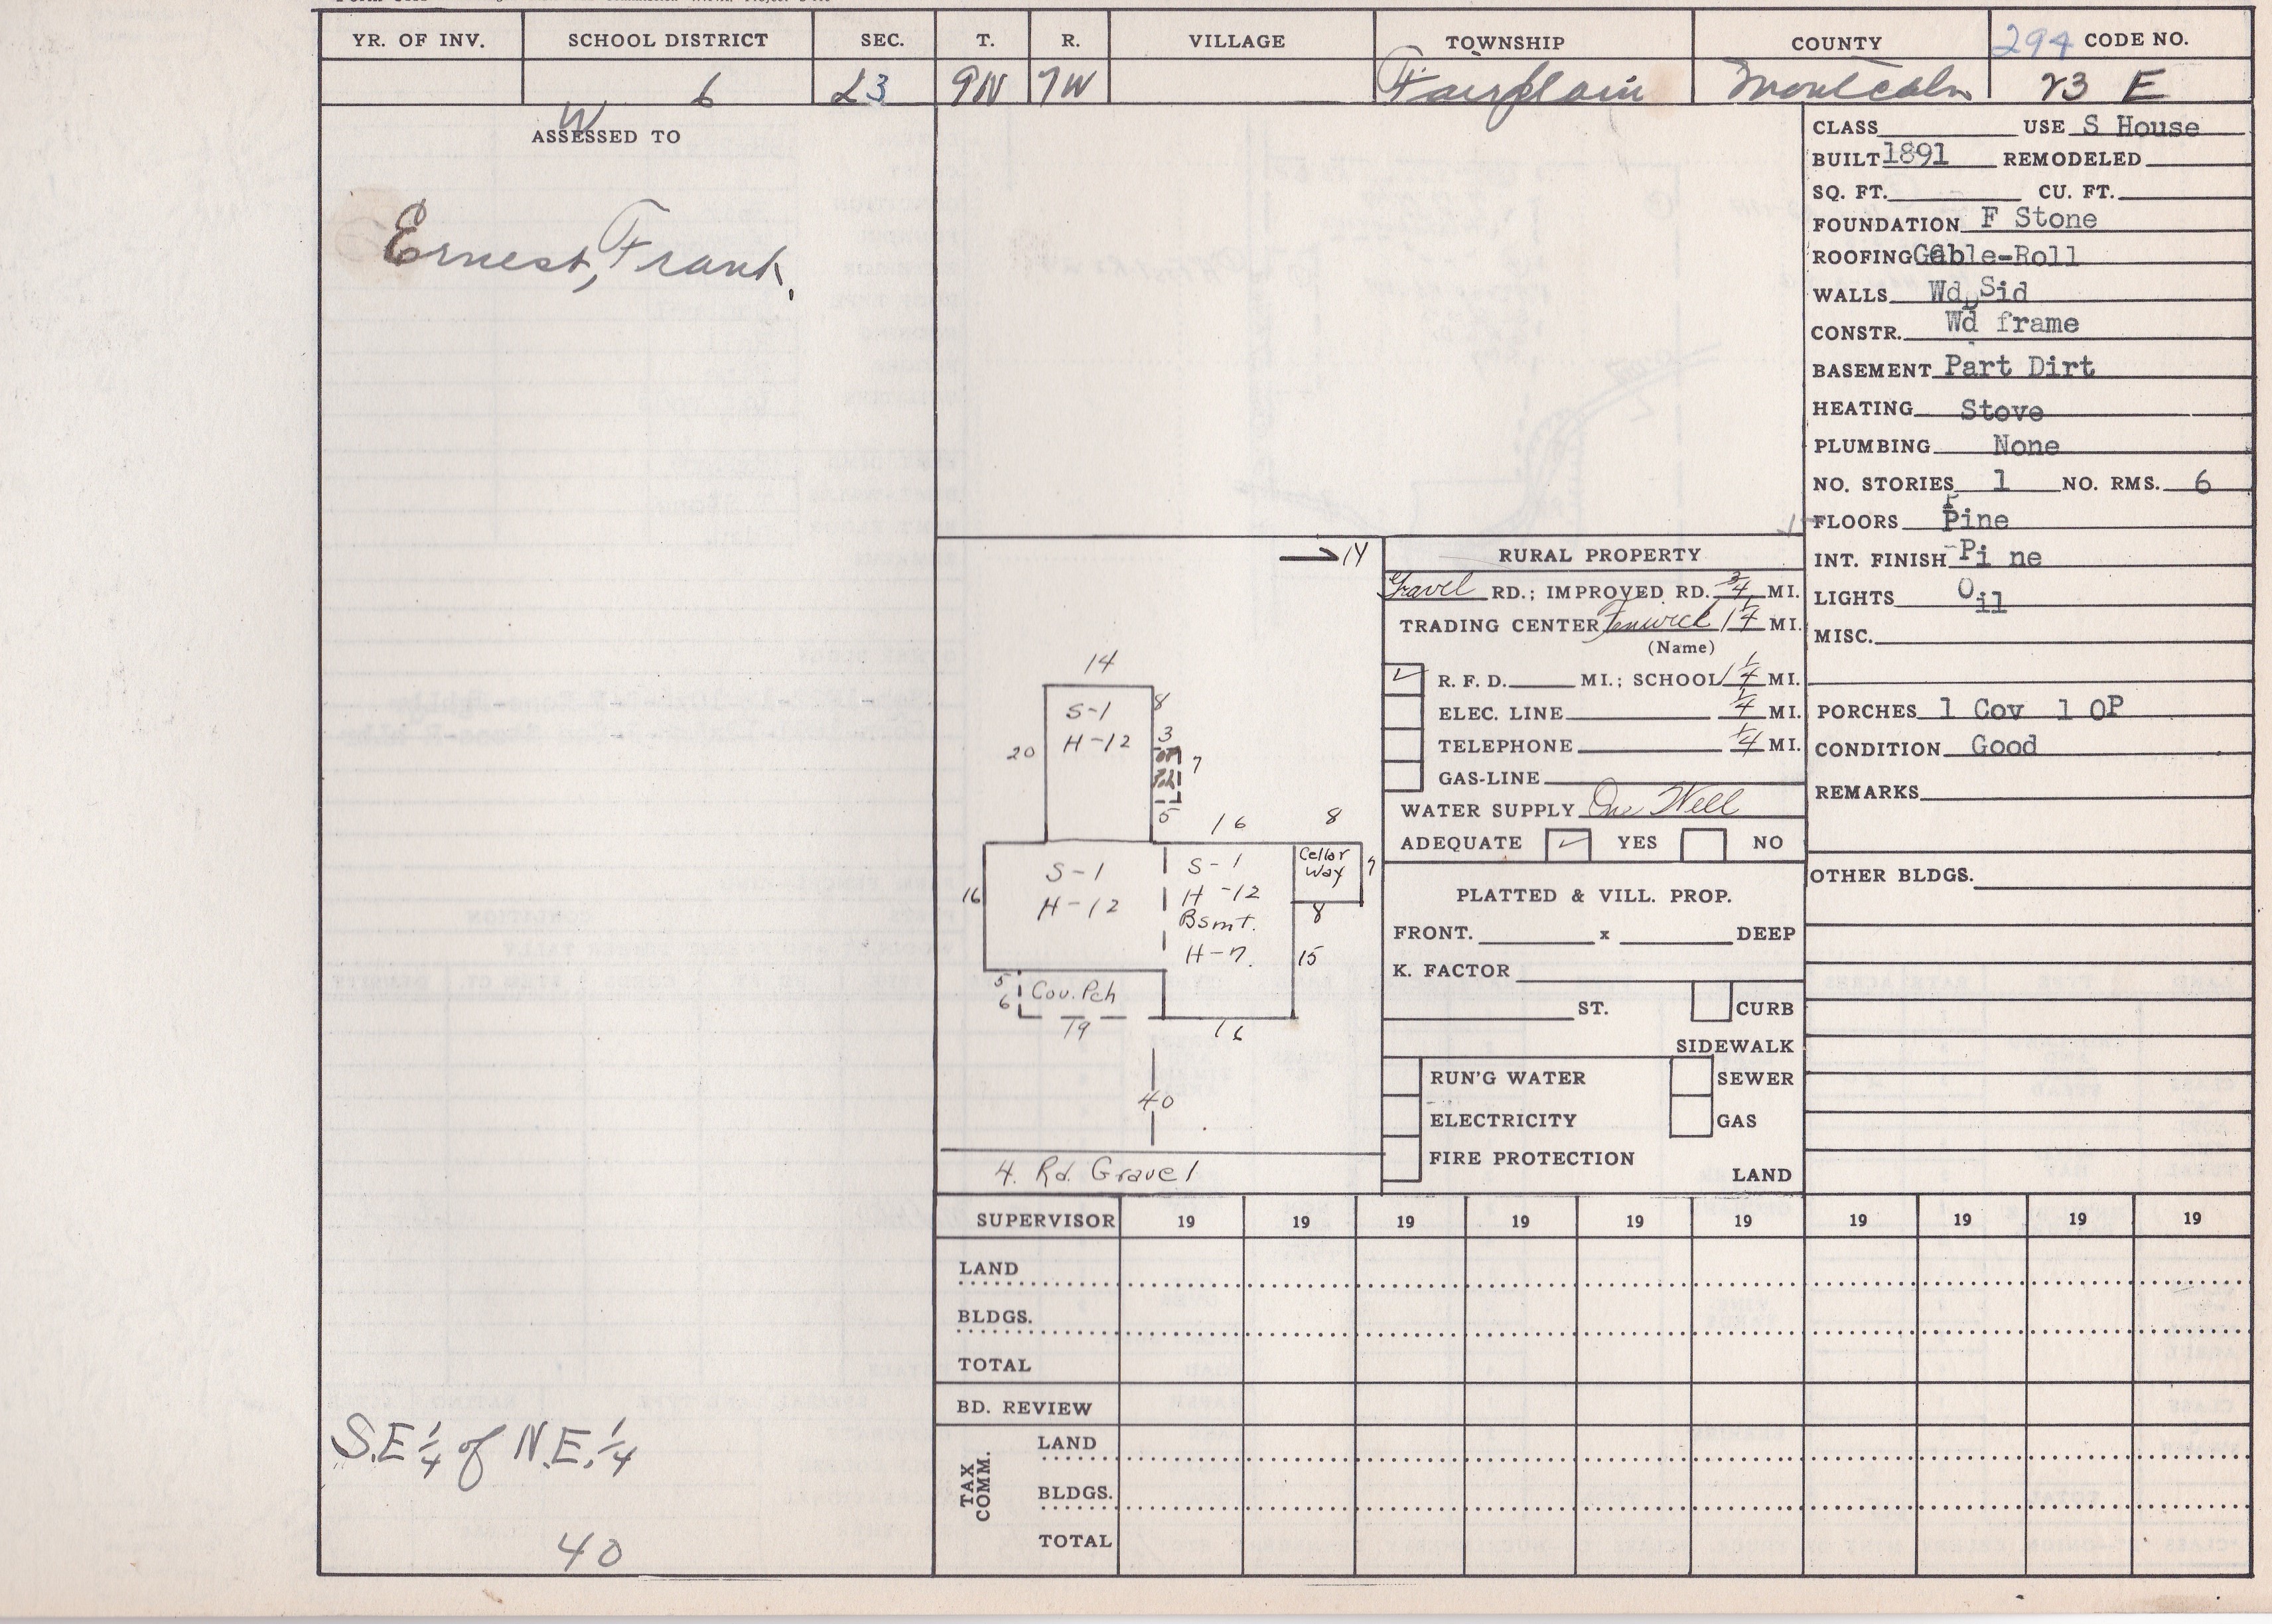 YR. OF INV. SCHOOL DISTRICT SEC. T. R. VILLAGE TOWNSHIP COUNTY 294 CODE NO.
W 6 23 9N 7W Fairplain Montcalm 23 E
ASSESSED TO
Ernest, Frank,
S.E 1/4 of N.E. 1/4
40
CLASS USE S House
BUILT 1891 REMODELED
SQ. FT. CU. FT.
FOUNDATION F Stone
ROOFING Gable-Roll
WALLS Wd Sid
CONSTR. Wd frame
BASEMENT Part Dirt
HEATING Stove
PLUMBING None
NO. STORIES 1 NO. RMS. 6
FLOORS Pine
INT. FINISH Pi ne
LIGHTS Oil
MISC.
PORCHES 1 Cov 1 OP
CONDITION Good
REMARKS
OTHER BLDGS.
14
S-1
H-12
20
8
3
OP
Pch
7
5
16
8
S-1
H-12
16
S-1
H-12
Bsmt.
H-7.
Cellar
Way
7
8
15
5
6
Cov. Pch
19
16
40
4. Rd. Gravel
RURAL PROPERTY
Gravel RD.; IMPROVED RD. 3/4 MI.
TRADING CENTER Fenwick 1 1/4 MI.
(Name)
R. F. D. MI.; SCHOOL 1 1/4 MI.
ELEC. LINE 1/4 MI.
TELEPHONE 1/4 MI.
GAS-LINE
WATER SUPPLY One Well
ADEQUATE YES NO
PLATTED & VILL. PROP.
FRONT. x DEEP
K. FACTOR
ST. CURB
SIDEWALK
RUN'G WATER SEWER
ELECTRICITY GAS
FIRE PROTECTION
LAND
SUPERVISOR 19 19 19 19 19 19 19 19 19 19
LAND
BLDGS.
TOTAL
BD. REVIEW
TAX COMM.
LAND
BLDGS.
TOTAL